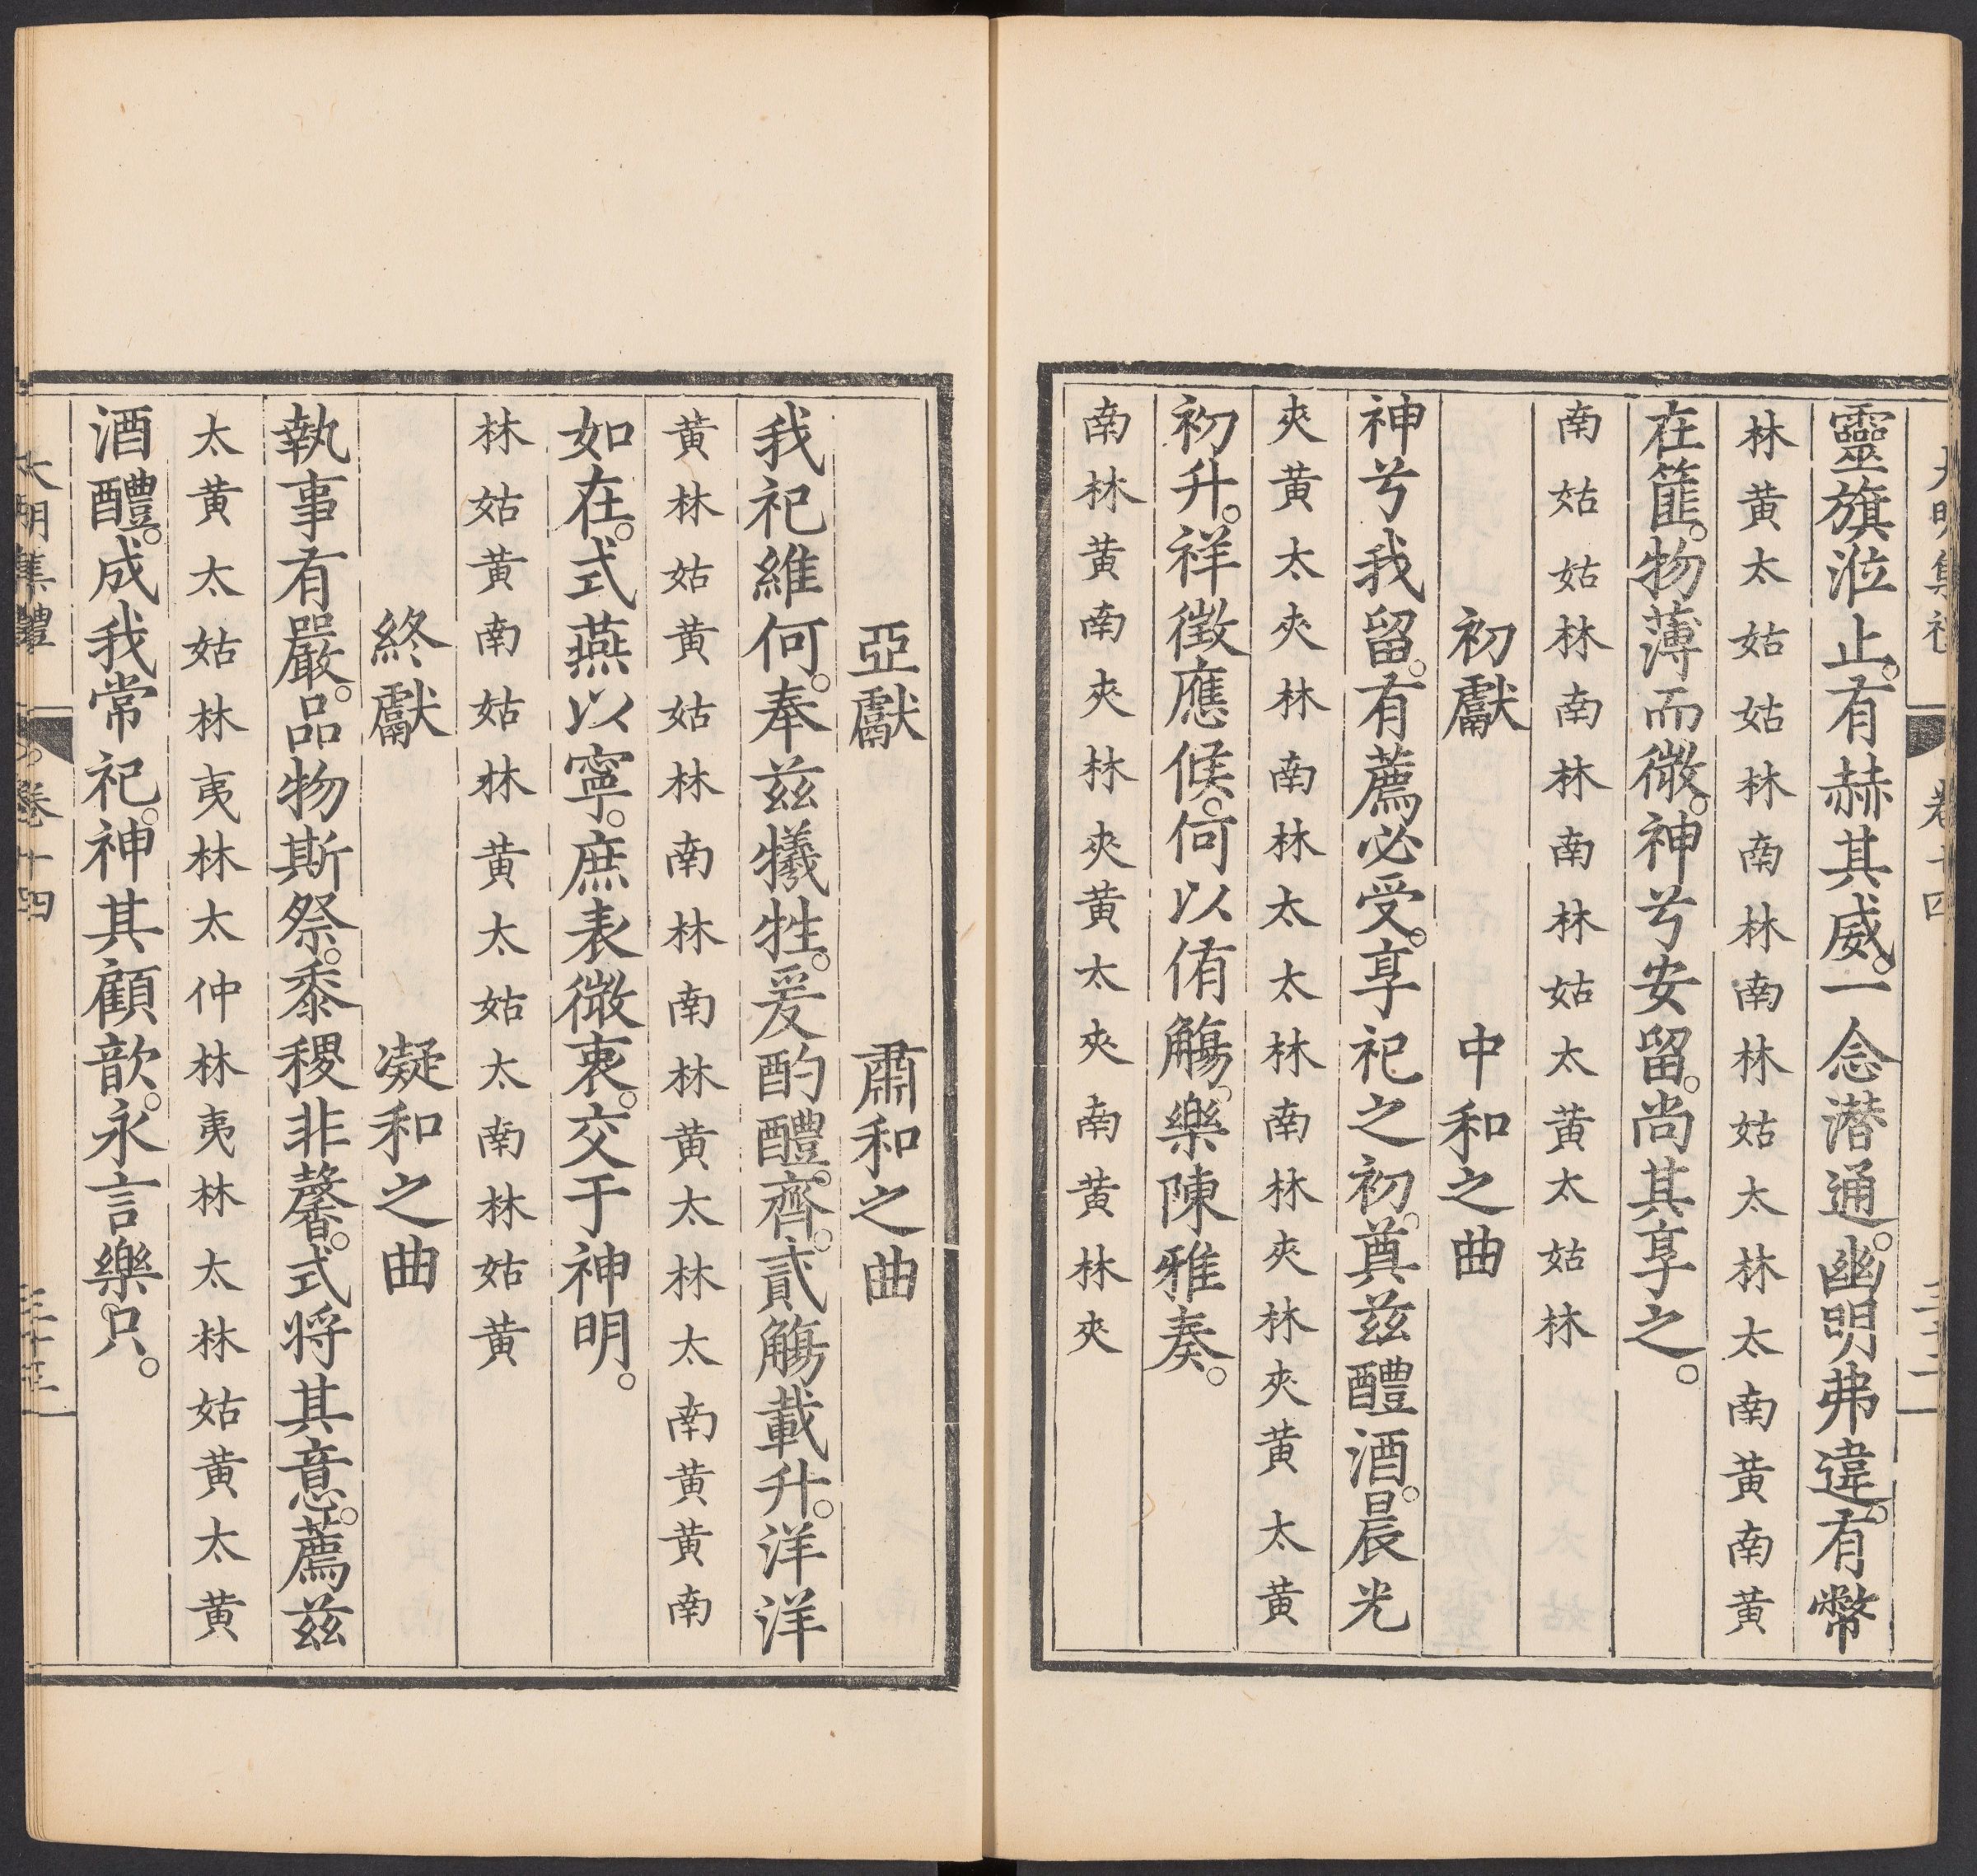 靈旗涖止。有赫其威。一念潜通。幽明弗違。有幣
林黄太姑姑林南林南林姑太林太南黄南黄
在篚。物薄而微。神兮安留。尚其享之。
南姑姑林南林南林姑太黄太姑林
初獻 中和之曲
神兮我留。有薦必受。享祀之初。奠兹醴酒。晨光
夾黄太夾林南林太太林南林夾林夾黄太黄
初升。祥徵應候。何以侑觴。樂陳雅奏。
南林黄南夾林夾黄太夾南黄林夾
亞獻 肅和之曲
我祀維何。奉兹犧牲。爰酌醴。齊。貳觴載升。洋洋
黄林姑黄姑林南林南林黄太林太南黄黄南
如在。式燕以寧。庶表微衷。交于神明。
林姑黄南姑林黄太姑太南林姑黄
終獻 凝和之曲
執事有嚴。品物斯祭。黍稷非馨。式将其意。薦兹
太黄太姑林夷林太仲林夷林太林姑黄太黄
酒醴。成我常祀。神其顧歆。永言樂只。
大明集禮 卷十四 三十三